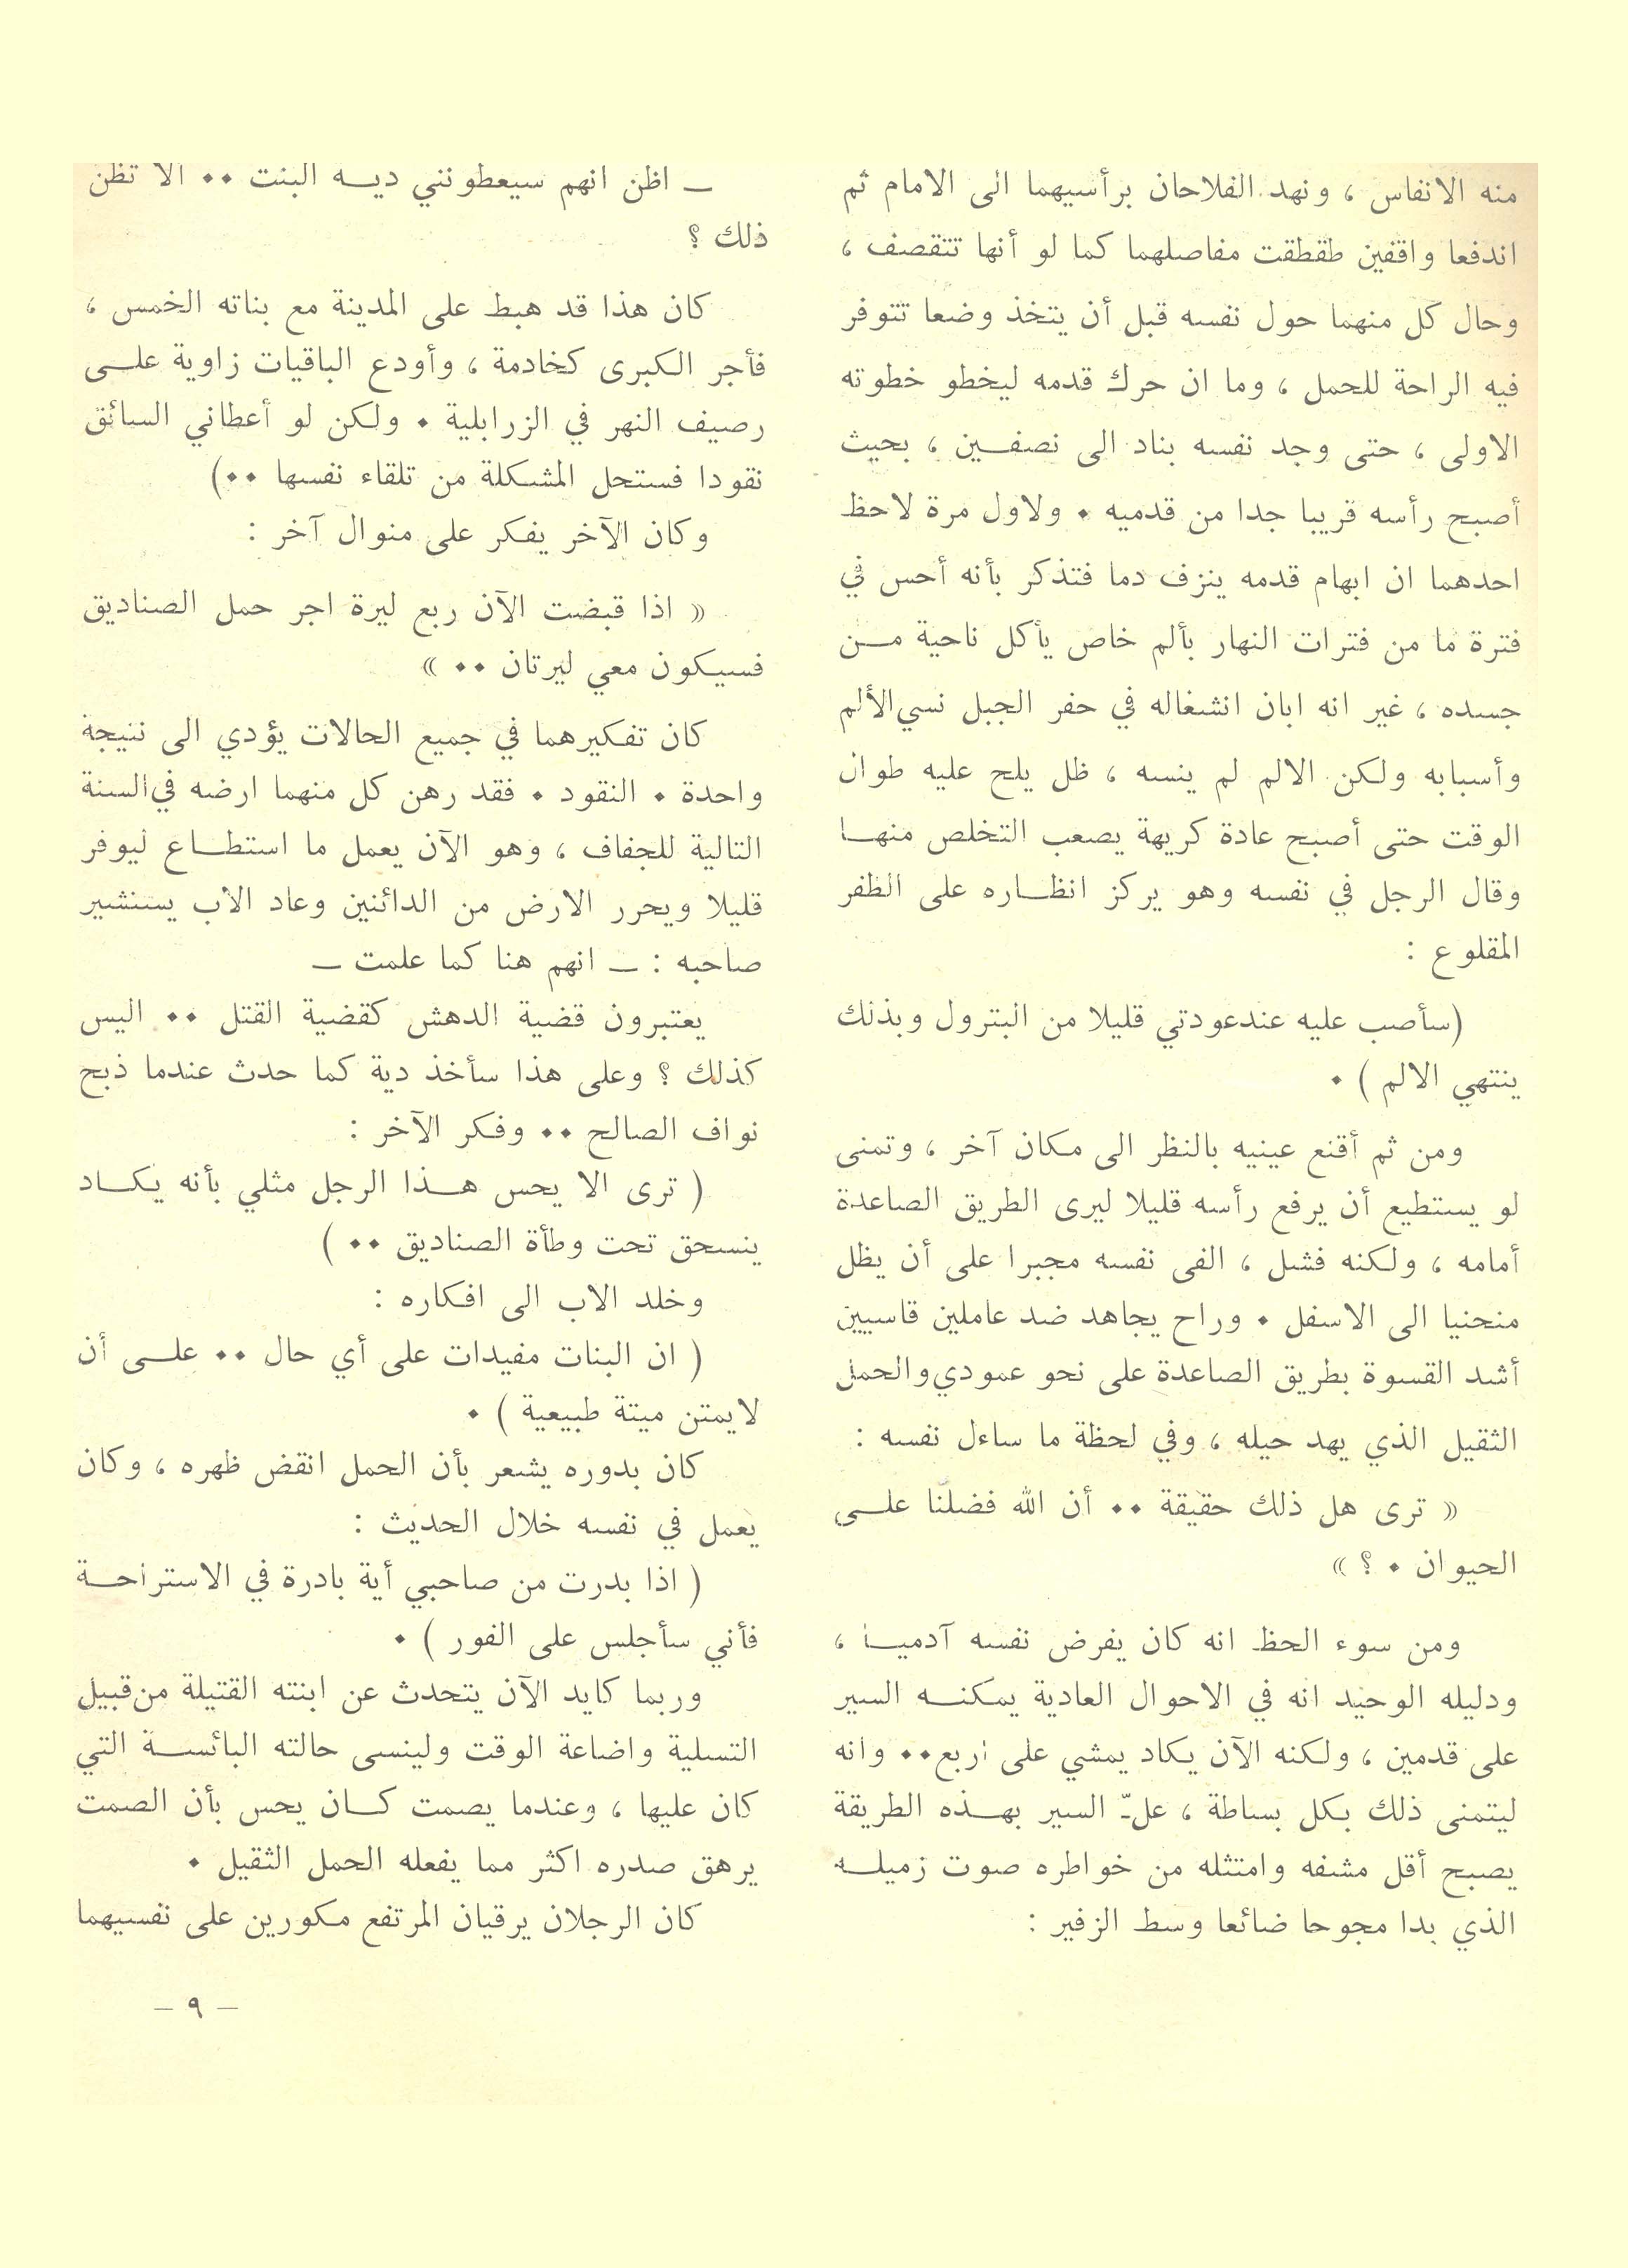 منه الانفاس ، ونهد الفلاحان برأسيهما الى الامام ثم
اندفعا واقفين طقطقت مفاصلهما كما لو أنها تتقصف ،
وحال كل منهما حول نفسه قبل أن يتخذ وضعا تتوفر
فيه الراحة للحمل ، وما ان حرك قدمه ليخطو خطوته
الاولى ، حتى وجد نفسه بناد الى نصفـين ، بحيث
أصبح رأسه قريبا جدا من قدميه . ولاول مرة لاحظ
احدهما ان ابهام قدمه ينزف دما فتذكر بأنه أحس في
فترة ما من فترات النهار بألم خاص يأكل ناحية مـن
جسده ، غير انه ابان انشغاله في حفر الجبل نسي الألم
وأسبابه ولكن الالم لم ينسه ، ظل يلح عليه طوال
الوقت حتى أصبح عادة كريهة يصعب التخلص منهـا
وقال الرجل في نفسه وهو يركز انظـاره على الظفر
المقلوع :
(سأصب عليه عندعودتي قليلا من البترول وبذلك
ينتهي الالم ) .
ومن ثم أقنع عينيه بالنظر الى مكان آخر ، وتمنى
لو يستطيع أن يرفع رأسه قليلا ليرى الطريق الصاعدة
أمامه ، ولكنه فشل ، الفى نفسه مجبرا على أن يظل
منحنيا الى الاسفل . وراح يجاهد ضد عاملين قاسيين
أشد القسوة بطريق الصاعدة على نحو عمودي والحمل
الثقيل الذي يهد حيله ، وفي لحظة ما ساءل نفسه :
« ترى هل ذلك حقيقة .. أن الله فضلنا علـى
الحيوان . ؟ »
ومن سوء الحظ انه كان يفرض نفسه آدميـا ،
ودليله الوحيد انه في الاحوال العادية يمكنـه السير
على قدمين ، ولكنه الآن يكاد يمشي على اربع.. وانه
ليتمنى ذلك بكل بساطة ، علّ السير بهـذه الطريقة
يصبح أقل مشفه وامتثله من خواطره صوت زميلـه
الذي بدا مجوحا ضائعا وسط الزفير :
ـ اظن انهم سيعطونني ديـه البنت .. الا تظن
ذلك ؟
كان هذا قد هبط على المدينة مع بناته الخمس ،
فأجر الكبرى كخادمة ، وأودع الباقيات زاوية علـى
رصيف النهر في الزرابلية . ولكن لو أعطاني السائق
نقودا فستحل المشكلة من تلقاء نفسها ..)
وكان الآخر يفكر على منوال آخر :
« اذا قبضت الآن ربع ليرة اجر حمل الصناديق
فسيكون معي ليرتان .. »
كان تفكيرهما في جميع الحالات يؤدي الى نتيجة
واحدة . النقود . فقد رهن كل منهما ارضه في السنة
التالية للجفاف ، وهو الآن يعمل ما استطـاع ليوفر
قليلا ويحرر الارض من الدائنين وعاد الاب يستشير
صاحبه : ـ انهم هنا كما علمت ـ
يعتبرون قضية الدهش كقضية القتل .. اليس
كذلك ؟ وعلى هذا سأخذ دية كما حدث عندما ذبح
نواف الصالح .. وفكر الآخر :
( ترى الا يحس هـذا الرجل مثلي بأنه يكـاد
ينسحق تحت وطأة الصناديق .. )
وخلد الاب الى افكاره :
( ان البنات مفيدات على أي حال .. علـى أن
لايمتن ميتة طبيعية ) .
كان بدوره يشعر بأن الحمل انقض ظهره ، وكان
يعمل في نفسه خلال الحديث :
( اذا بدرت من صاحبي أية بادرة في الاستراحـة
فأني سأجلس على الفور ) .
وربما كايد الآن يتحدث عن ابنته القتيلة من قبيل
التسلية واضاعة الوقت ولينسى حالته البائسـة التي
كان عليها ، وعندما يصمت كـان يحس بأن الصمت
يرهق صدره اكثر مما يفعله الحمل الثقيل .
كان الرجلان يرقيان المرتفع مكورين على نفسيهما
– ٩ –